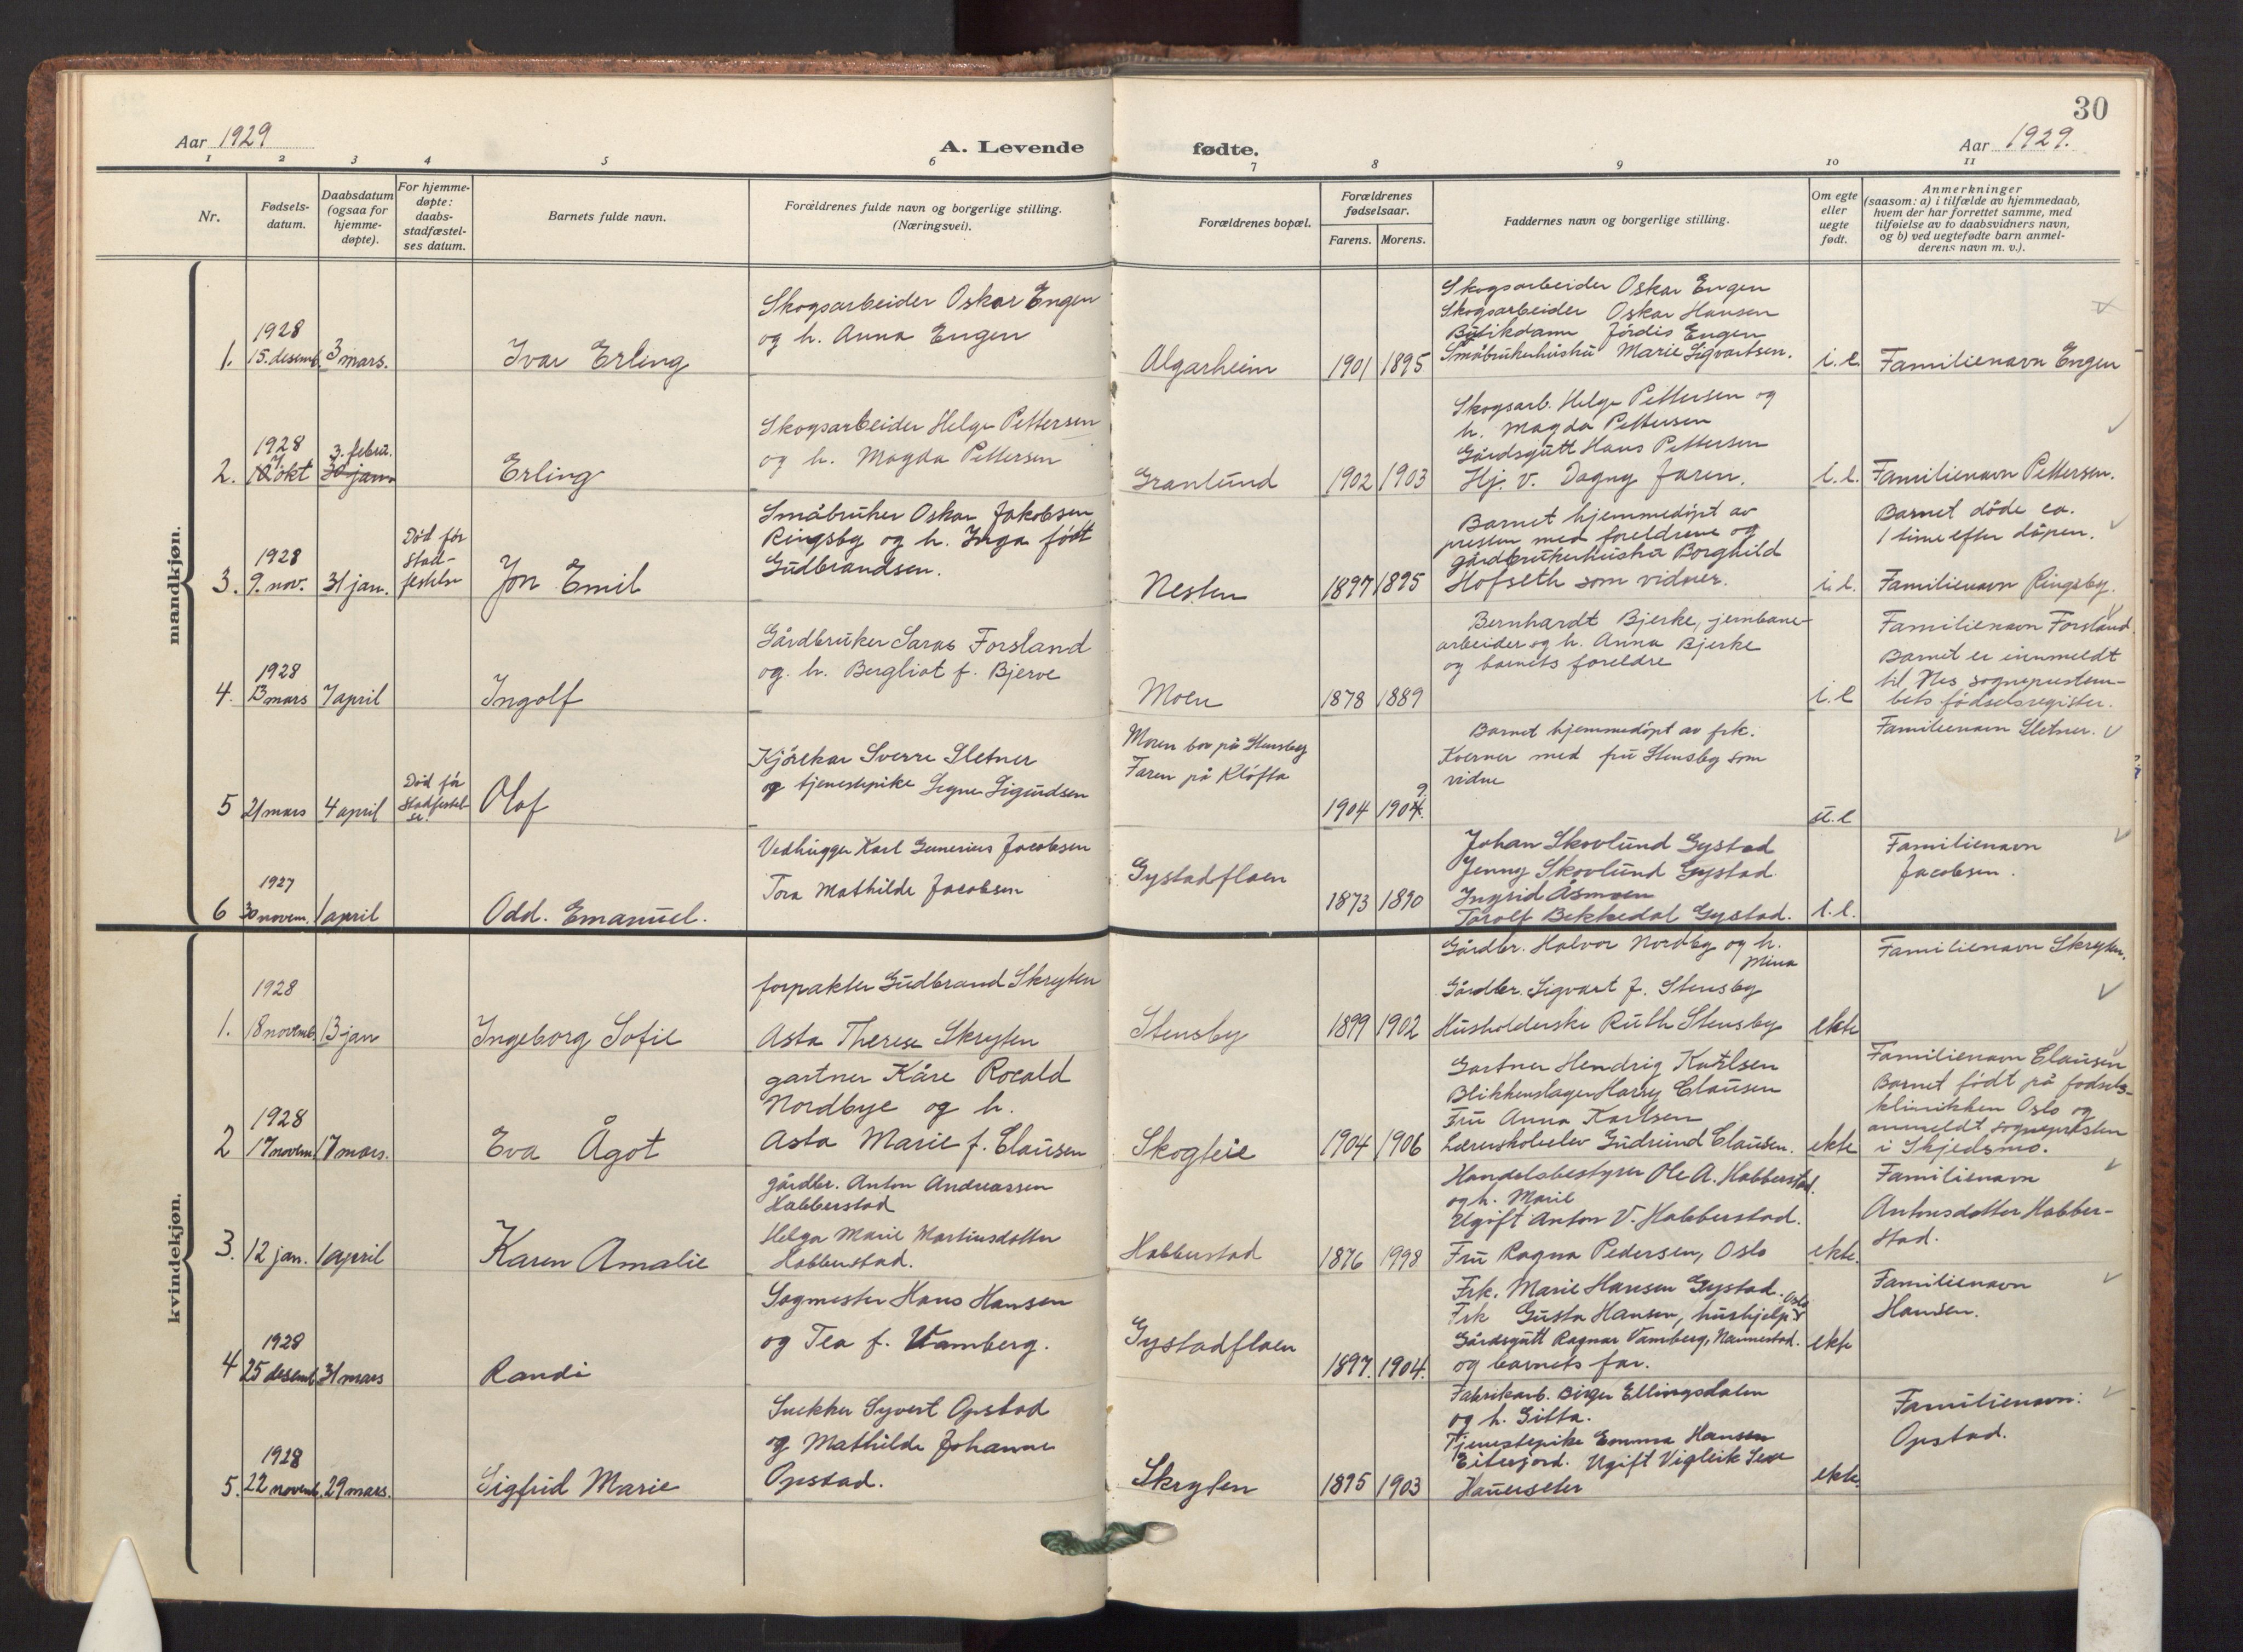 30
Aar 1929
A. Levende fødte.
Aar 1929.
1 2 3 4 5 6 7 8 9 10 11
Nr.
Fødsels-
datum.
Daabsdatum
(ogsaa for
hjemme-
døpte).
For hjemme-
døpte:
daabs-
stadfæstel-
ses datum.
Barnets fulde navn.
Forældrenes fulde navn og borgerlige stilling.
(Næringsvei).
Forældrenes bopæl.
Forældrenes
fødselsaar.
Farens. Morens.
Faddernes navn og borgerlige stilling.
Om egte
eller
uegte
født.
Anmerkninger
(saasom: a) i tilfælde av hjemmedaab,
hvem der har forrettet samme, med
tilføielse av to daabsvidners navn,
og b) ved uegtefødte barn anmel-
derens navn m. v.).
mandkjøn.
1.
1928
15. desemb.
3 mars.
Ivar Erling
Skogsarbeider Oskar Engen
og h. Anna Engen
Algarheim
1901
1895
Skogsarbeider Oskar Engen
Skogsarbeider Oskar Hansen
Butikdame Jórdis Engen
Småbrukerhustru Marie Sigvartsen.
i. e.
Familienavn Engen
2.
1928
okt
3. febru.
30 jan
Erling
Skogsarbeider Helge Pettersen
og h. Magda Pettersen
Granlund
1902
1903
Skogsarb. Helge Pettersen og
h. Magda Pettersen
Gårdsgutt Hans Pettersen
Hj. v. Dagny Jaren.
i. e.
Familienavn Pettersen.
3.
1928
9. nov.
31 jan.
Död för
Stad-
festelse
Jon Emil
Småbruker Oskar Jakobsen
Ringsby og h. Inga født
Gudbrandsen.
Nesten
1897
1895
Barnet hjemmedöpt av
presten med foreldrene og
gårdbrukerhustru Borghild
Hofseth som vidner.
i. e.
Barnet döde ca.
1 time efter dåpen.
Familienavn Ringsby.
4.
1928
13 mars
7 april
Ingolf
Gårdbruker Saras Forsland
og. h. Bergliot f. Bjerve
Moen
1878
1889
Bernhardt Bjerke, jernbane-
arbeider og h. Anna Bjerke
og barnets foreldre
i. e
Familienavn Forsland.
Barnet er innmeldt
til Nes sogneprestem-
bets födselsregister.
5
21 mars
4 april
Död för
Stadfestel-
se.
Olaf
Kjörekar Sverre Sletner
og tjenestepike Signe Sigurdsen
Moren bor på Stensby
Faren på Klöfta
1904
1909
Barnet hjemmedöpt av frk.
Kverner med fru Stensby som
vidne
u. e
Familienavn Sletner.
6
1927
30 novem.
1 april
Odd. Emanuel.
Vedhugger Karl Gunerius Jacobsen
Tora Mathilde Jacobsen
Gystadflaen
1873
1890
Johan Skovlund Gystad
Jenny Skovlund Gystad
Ingrid Åsmoen
Torolf Bekkedal Gystad.
i. e.
Familienavn
Jacobsen.
kvindekjøn.
1.
1928
18 novemb.
13 jan
Ingeborg Sofie
forpakter Gudbrand Skryten
Asta Therese Skryten
Stensby
1899
1902
Gårdbr. Halvor Nordby og h.
Mina
Gårdbr. Sigvart f. Stensby
Husholderske Ruth Stensby
ekte
Familienavn Skryten.
2
1928
17 novem
17 mars.
Eva Ågot
gartner Kåre Roald
Nordbye og h.
Asta Marie f. Clausen
Skogleie
1904
1906
Gartner Hendrig Karlsen
Blikkenslager Harry Clausen
Fru Anna Karlsen
Lærerskoleelev Gudrund Clausen.
ekte
Familienavn Clausen
Barnet födt på fødsels-
klinikken Oslo og
anmeldt sognepresten
i Skjedsmo.
3.
12 jan.
1 april
Karen Amalie
gårdbr. Anton Andreassen
Habberstad
Helga Marie Martinsdatter
Habberstad.
Habberstad
1876
1998
Handelsbestyrer Ole A. Habberstad.
og h. Marie
Ugift Anton V. Habberstad.
Fru Ragna Pedersen, Oslo
ekte.
Familienavn
Antonsdotter Habber-
stad.
4
1928
25 desemb
31 mars
Randi
Sagmester Hans Hansen
og Tea f. Vamberg.
Gystadflaen
1897.
1904.
Frk. Marie Hansen Gystad.
Frk Gusta Hansen, hushjelp Oslo
Gårdsgutt Ragnar Vamberg, Nannestad.
og barnets far.
ekte
Familienavn
Hansen.
5.
1928
22 novemb.
29 mars.
Sigfrid Marie
Snekker Syvert Opstad
og Mathilde Johanne
Opstad.
Skryten
1895
1903
Fabrikarb. Birger Ellingsdalen
og h. Gitta.
Tjenestepike Emma Hansen
Eitersjord. Ugift Vigleik Sexe
Hauerseter
ekte.
Familienavn:
Opstad.